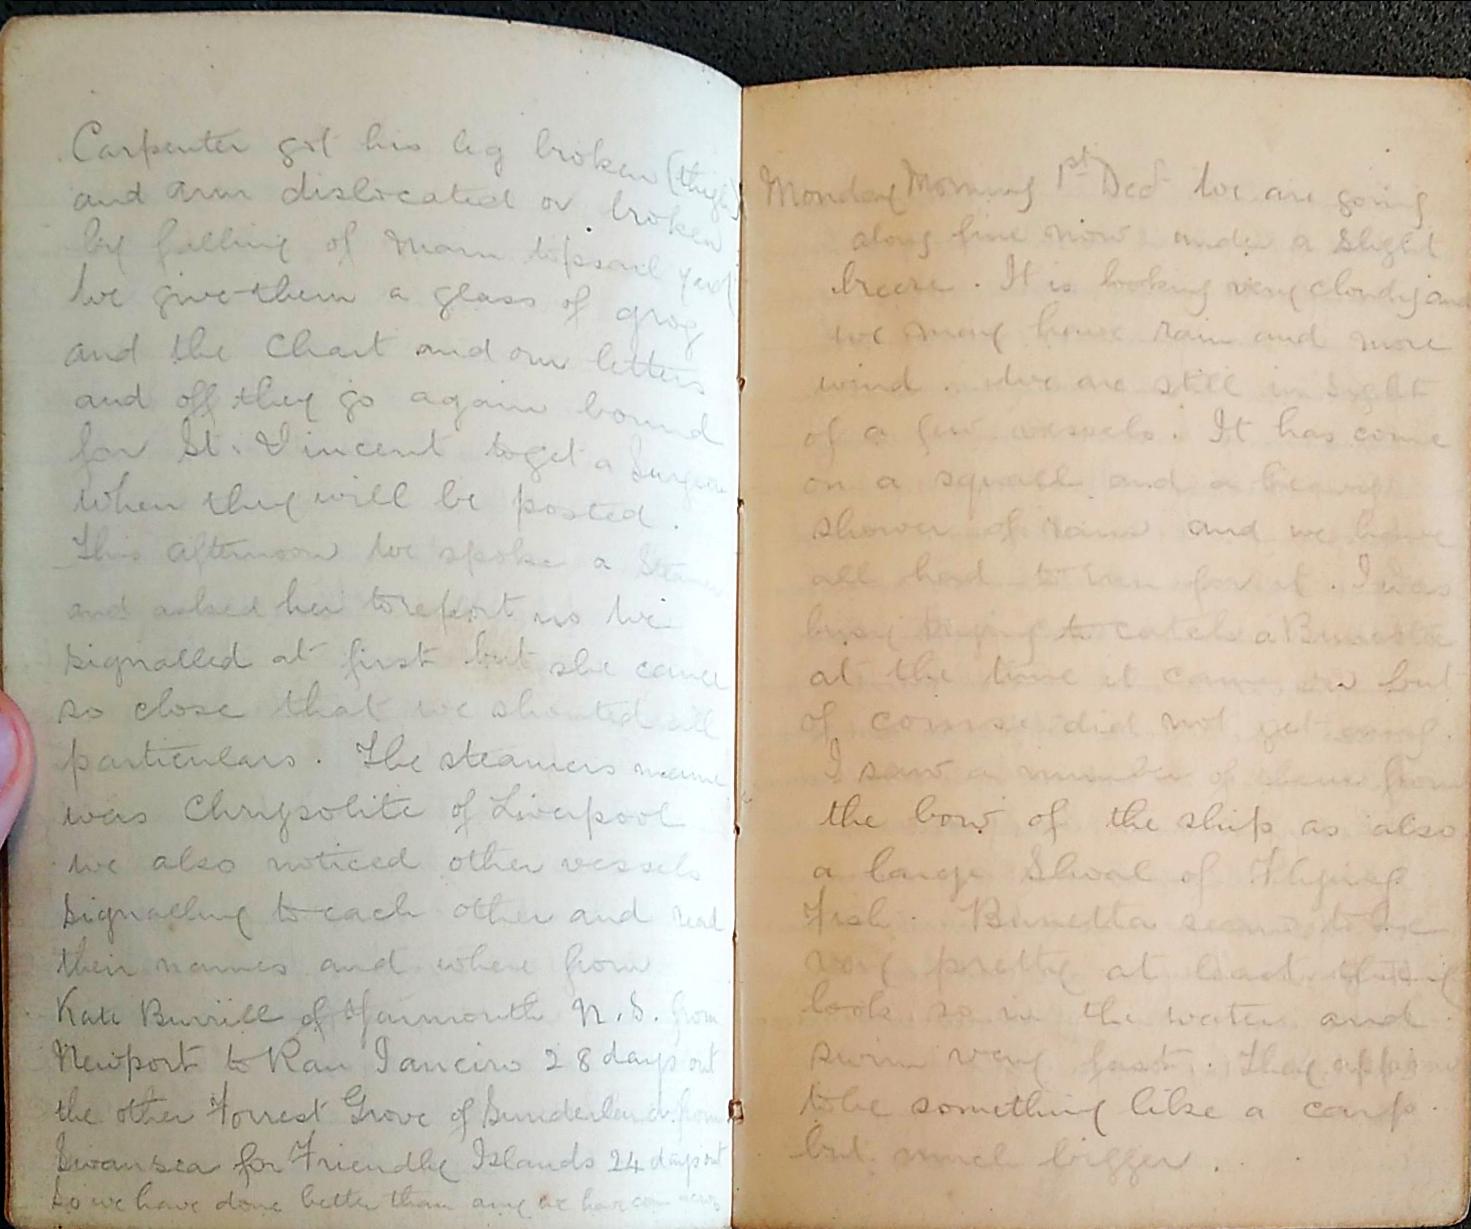 Carpenter got his leg broken (thigh)
and arm dislocated or broken
by falling of Main topsail yard
We give them a glass of grog
and the Chart and our letters
and off they go again bound
for St. Vincent to get a Surgeon
when they will be posted.
This afternoon we spoke a Steamer
and asked her to report us We
signalled at first but she came
so close that we shouted all
particulars. The steamers name
was Chrysolite of Liverpool
we also noticed other vessels
signalling to each other and read
their names and where from
Kate Burrill of Yarmouth N.S. from
Newport to Rau Janeiro 28 days out
the other Forrest Grove of Sunderland from
Swansea for Friendly Islands 24 days out
So we have done better than any we have come across
Monday Morning 1st Decr We are going
along fine now under a slight
breeze. It is looking very cloudy and
we may have rain and more
wind. We are still in sight
of a few vessels. It has come
on a squall and a heavy
shower of rain and we have
all had to run for it. I was
busy trying to catch a Bunetta
at the time it came on but
of course did not get
I saw a number of them from
the bow of the ship as also
a large Shoal of Flying
Fish. Bunetta seems to be
very pretty at least they
look so in the water and
swim very fast. They appear
to be something like a carp.
but much bigger.